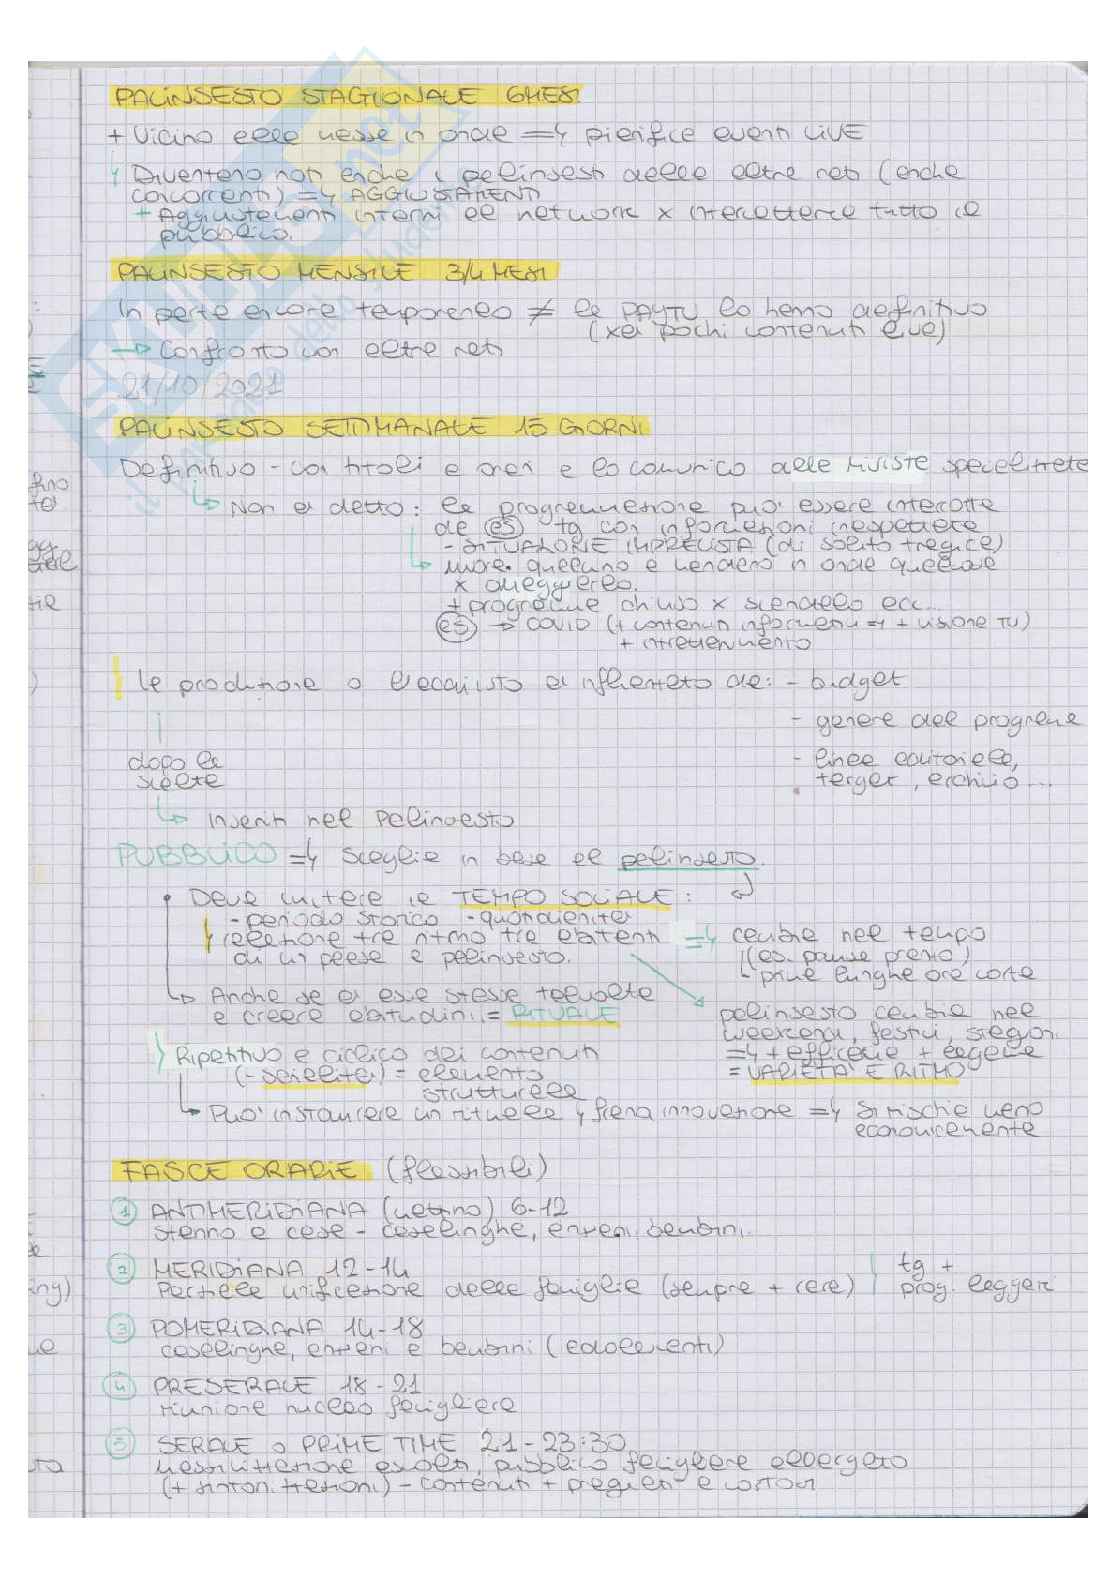 PALINSESTO STAGIONALE 6MESI
+ Vicino alla messa in onda => pianifica eventi LIVE
Diventano noti anche i palinsesti delle altre reti (anche
concorrenti) => AGGIUSTAMENTI
+ Aggiustamenti interni al network x intercettare tutto il
pubblico.
PALINSESTO MENSILE 3/4 MESI
In parte ancora temporaneo ≠ la PAYTV lo hanno definitivo
(xé pochi contenuti live)
→ Confronto con altre reti
21/10/2021
PALINSESTO SETTIMANALE 15 GIORNI
Definitivo - con titoli e orari e lo comunico alle riviste specializzate
↳ Non è detto: la programmazione può essere interrotta
da (es) tg con informazioni inaspettate
- SITUAZIONE IMPREVISTA (di solito tragica)
↳ muore qualcuno e vendono in onda qualcosa
x omaggiarlo.
+ programma chiuso x scandalo ecc...
(es) → COVID (+ contenuti informativi => + visione TV)
+ intrattenimento
La produzione o l'acquisto è influenzato da: - budget
- genere del programma
- linea editoriale,
target, archivio...
dopo la
scelta
↳ inseriti nel palinsesto
PUBBLICO => sceglie in base al palinsesto.
• Deve imitare il TEMPO SOCIALE:
- periodo storico - quotidianità
relazione tra ritmo tra abitanti
di un paese e palinsesto.
=> cambia nel tempo
(es. pausa pranzo)
prima lunghe ora corte
↳ Anche se è essa stessa talvolta
a creare abitudini = RITUALE
palinsesto cambia nel
weekend, festivi, stagioni
=> + efficacia + legame
= VARIETÀ E RITMO
Ripetitivo e ciclico dei contenuti
(- serialità) = elemento
strutturale
↳ Può instaurare un rituale, frena innovazione => si rischia meno
economicamente
FASCE ORARIE (flessibili)
1 ANTIMERIDIANA (mattino) 6-12
stanno a casa - casalinghe, anziani, bambini.
2 MERIDIANA 12-14
Parziale unificazione delle famiglie (sempre + rara)
tg +
prog. leggeri
3 POMERIDIANA 14-18
casalinghe, anziani e bambini (adolescenti)
4 PRESERALE 18-21
riunione nucleo famigliare
5 SERALE o PRIME TIME 21-23:30
massimizzazione ascolti, pubblico famigliare allargato
(+ sintonizzazioni) - contenuti + pregiati e costosi